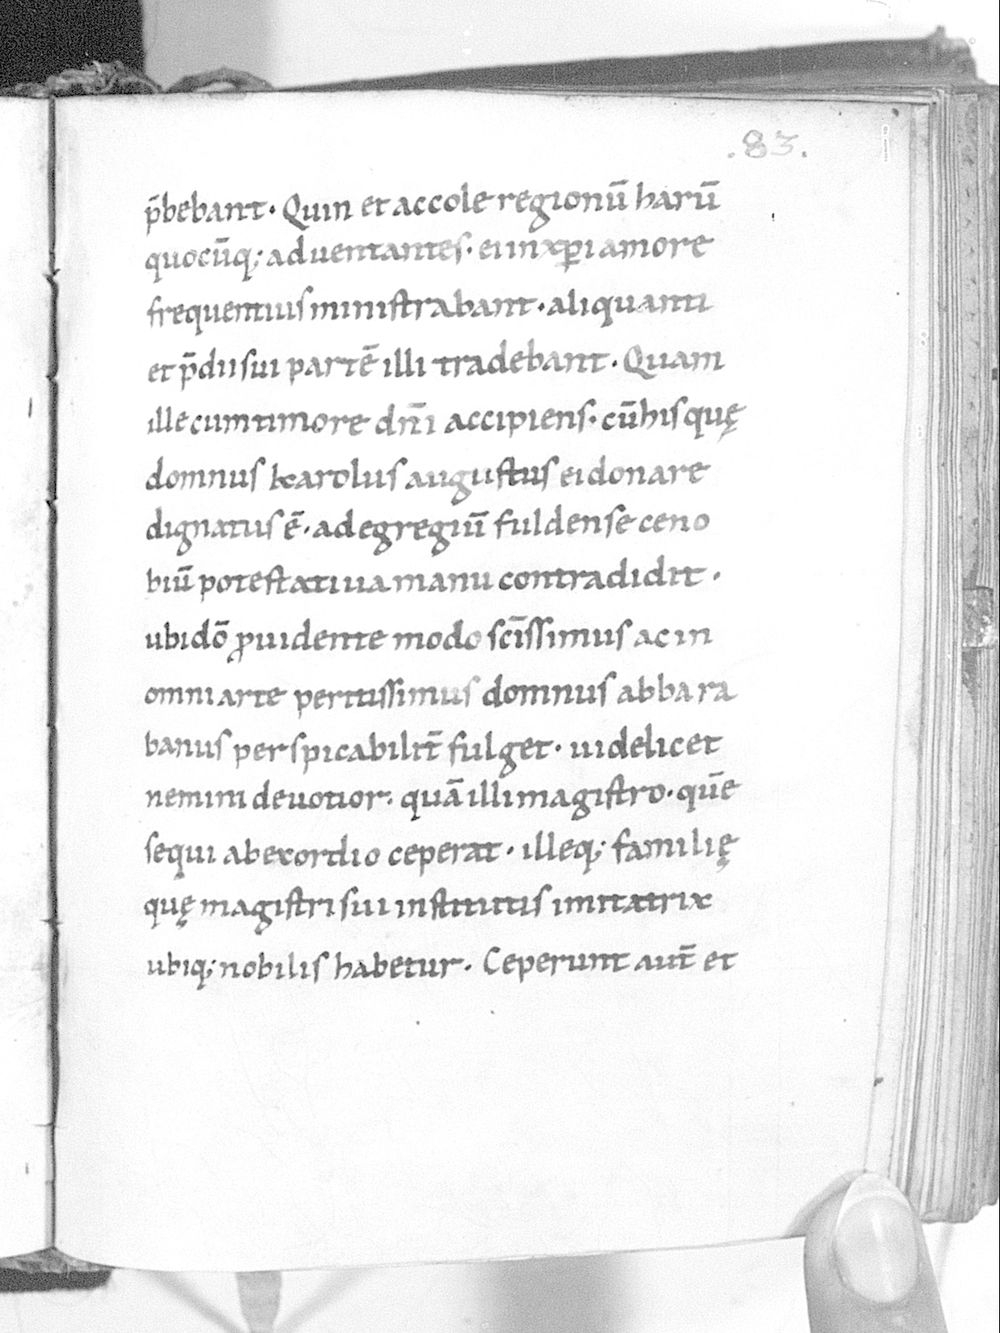 .83.
p̄bebant· Quin et accole regionū harū
quocūq; aduentantes· ei in xp̄i amore
frequentius ministrabant· aliquanti
et p̄dii sui partē illi tradebant· Quam
ille cum timore dn̄i accipiens· cū his quę
domnus karolus augustus ei donare
dignatus ē· ad egregiū fuldense ceno
biū potestatiua manu contradidit·
ubi dō ꝓuidente modo sc̄issimus ac in
omni arte peritissimus domnus abba ra
banus perspicabilit̄ fulget· uidelicet
nemini deuotior· quā illi magistro· quē
sequi ab exordio ceperat· illeq; familię
quę magistri sui institutis imitatrix
ubiq; nobilis habetur· Ceperunt aut̄ et